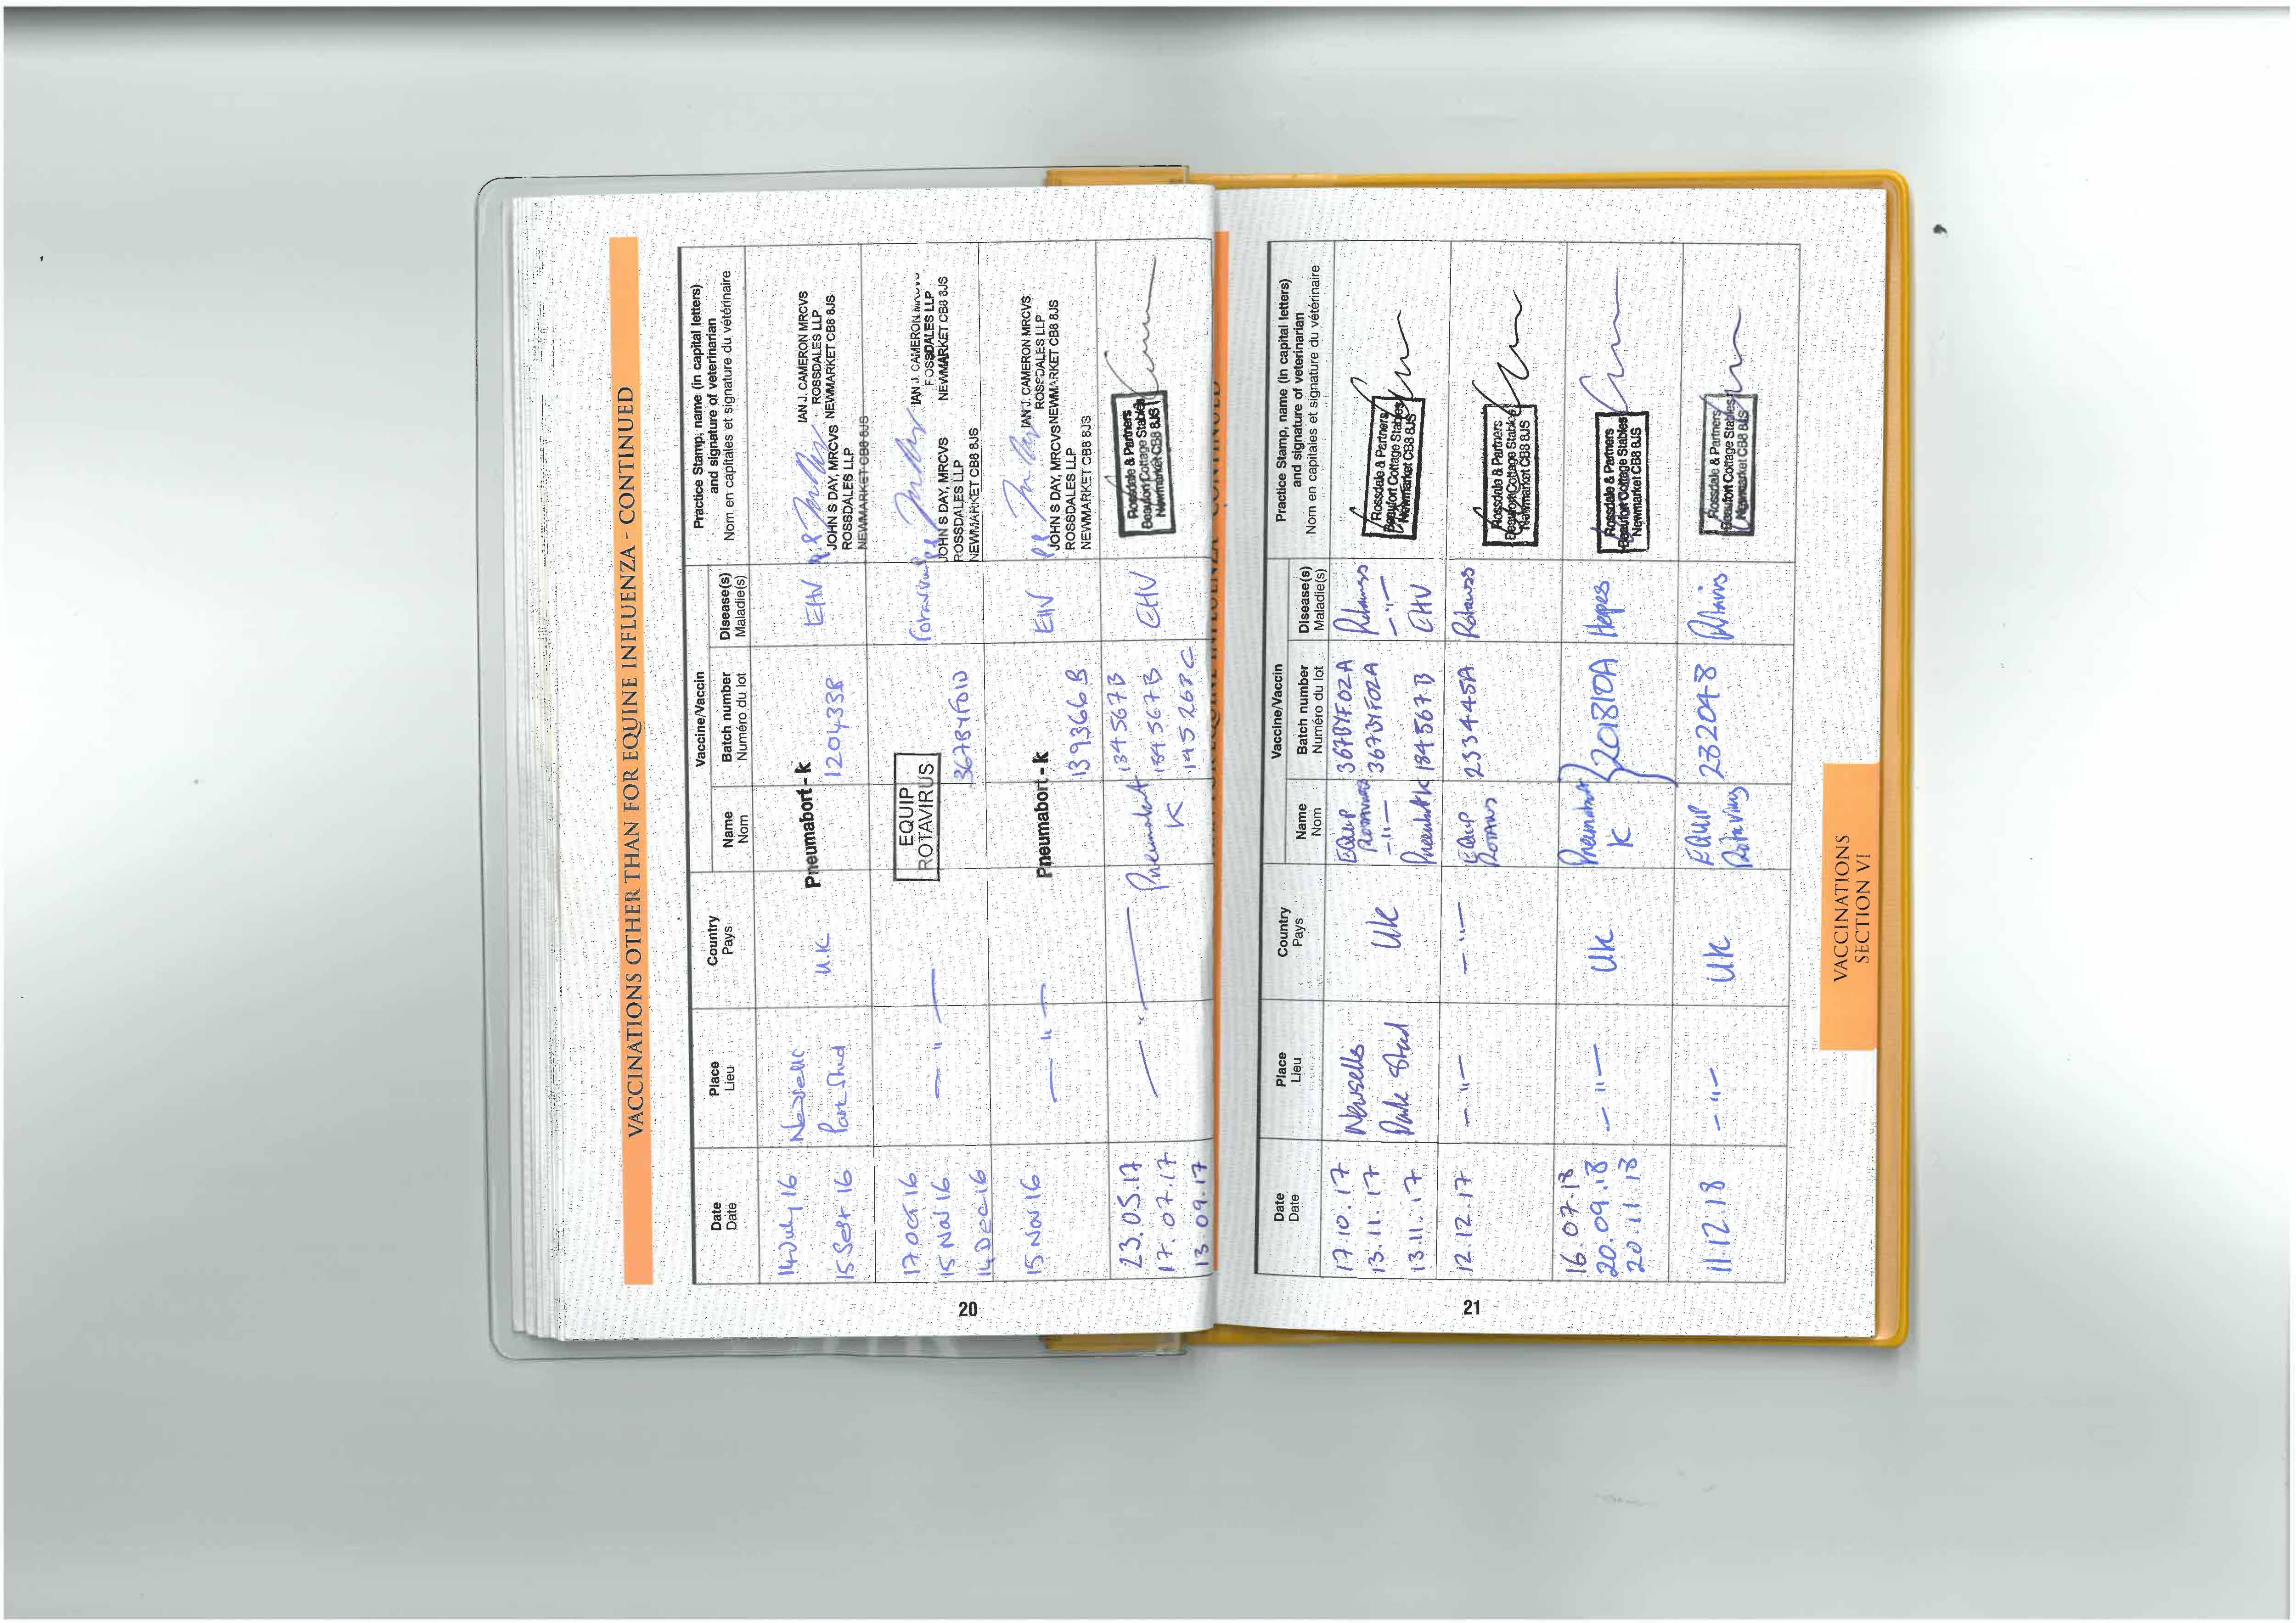 VACCINATIONS OTHER THAN FOR EQUINE INFLUENZA - CONTINUED
Date
Date
Place
Lieu
Country
Pays
Vaccine/Vaccin
Name
Nom
Batch number
Numéro du lot
Disease(s)
Maladie(s)
Practice Stamp, name (in capital letters)
and signature of veterinarian
Nom en capitales et signature du vétérinaire
14 July 16
15 Sept 16
Park Stud
U.K
Pneumabort - k
120433B
EHV
IAN J. CAMERON MRCVS
ROSSDALES LLP
NEWMARKET CB8 8JS
JOHN S DAY, MRCVS
ROSSDALES LLP
NEWMARKET CB8 8JS
17 Oct 16
15 Nov 16
14 Dec 16
— " —
EQUIP
ROTAVIRUS
367BYF01D
IAN J. CAMERON MRCVS
ROSSDALES LLP
NEWMARKET CB8 8JS
JOHN S DAY, MRCVS
ROSSDALES LLP
NEWMARKET CB8 8JS
15 Nov 16
— " —
Pneumabort - k
139366B
EHV
IAN J. CAMERON MRCVS
ROSSDALES LLP
NEWMARKET CB8 8JS
JOHN S DAY, MRCVS
ROSSDALES LLP
NEWMARKET CB8 8JS
23.05.17
17.07.17
13.09.17
— " —
Pneumabort
K
184567B
184567B
195268C
EHV
Rossdale & Partners
Beaufort Cottage Stables
Newmarket CB8 8JS
20
Date
Date
Place
Lieu
Country
Pays
Vaccine/Vaccin
Name
Nom
Batch number
Numéro du lot
Disease(s)
Maladie(s)
Practice Stamp, name (in capital letters)
and signature of veterinarian
Nom en capitales et signature du vétérinaire
17.10.17
13.11.17
13.11.17
Newsells
Park Stud
Uk
EQUIP
Rotavirus
— " —
Pneumabort K
367BYF02A
367BYF02A
184567B
Rotavirus
— " —
EHV
Rossdale & Partners
Beaufort Cottage Stables
Newmarket CB8 8JS
12.12.17
— " —
— " —
EQUIP
233445A
Rossdale & Partners
Beaufort Cottage Stables
Newmarket CB8 8JS
16.07.18
20.09.18
20.11.18
— " —
Uk
Pneumabort
K
201810A
Herpes
Rossdale & Partners
Beaufort Cottage Stables
Newmarket CB8 8JS
11.12.18
— " —
UK
EQUIP
Rotavirus
232048
Rossdale & Partners
Beaufort Cottage Stables
Newmarket CB8 8JS
21
VACCINATIONS
SECTION VI